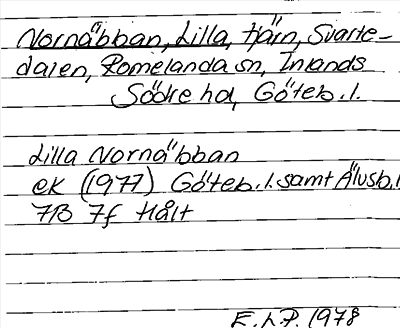 Vornäbban, Lilla, tjärn, Svarte-
dalen, Romelanda sn, Inlands
Södre hd, Göteb. l.
Lilla Vornäbban
ek (1977) Göteb. l. samt Älvsb. l
7B 7f Hålt
E.L.P. 1978